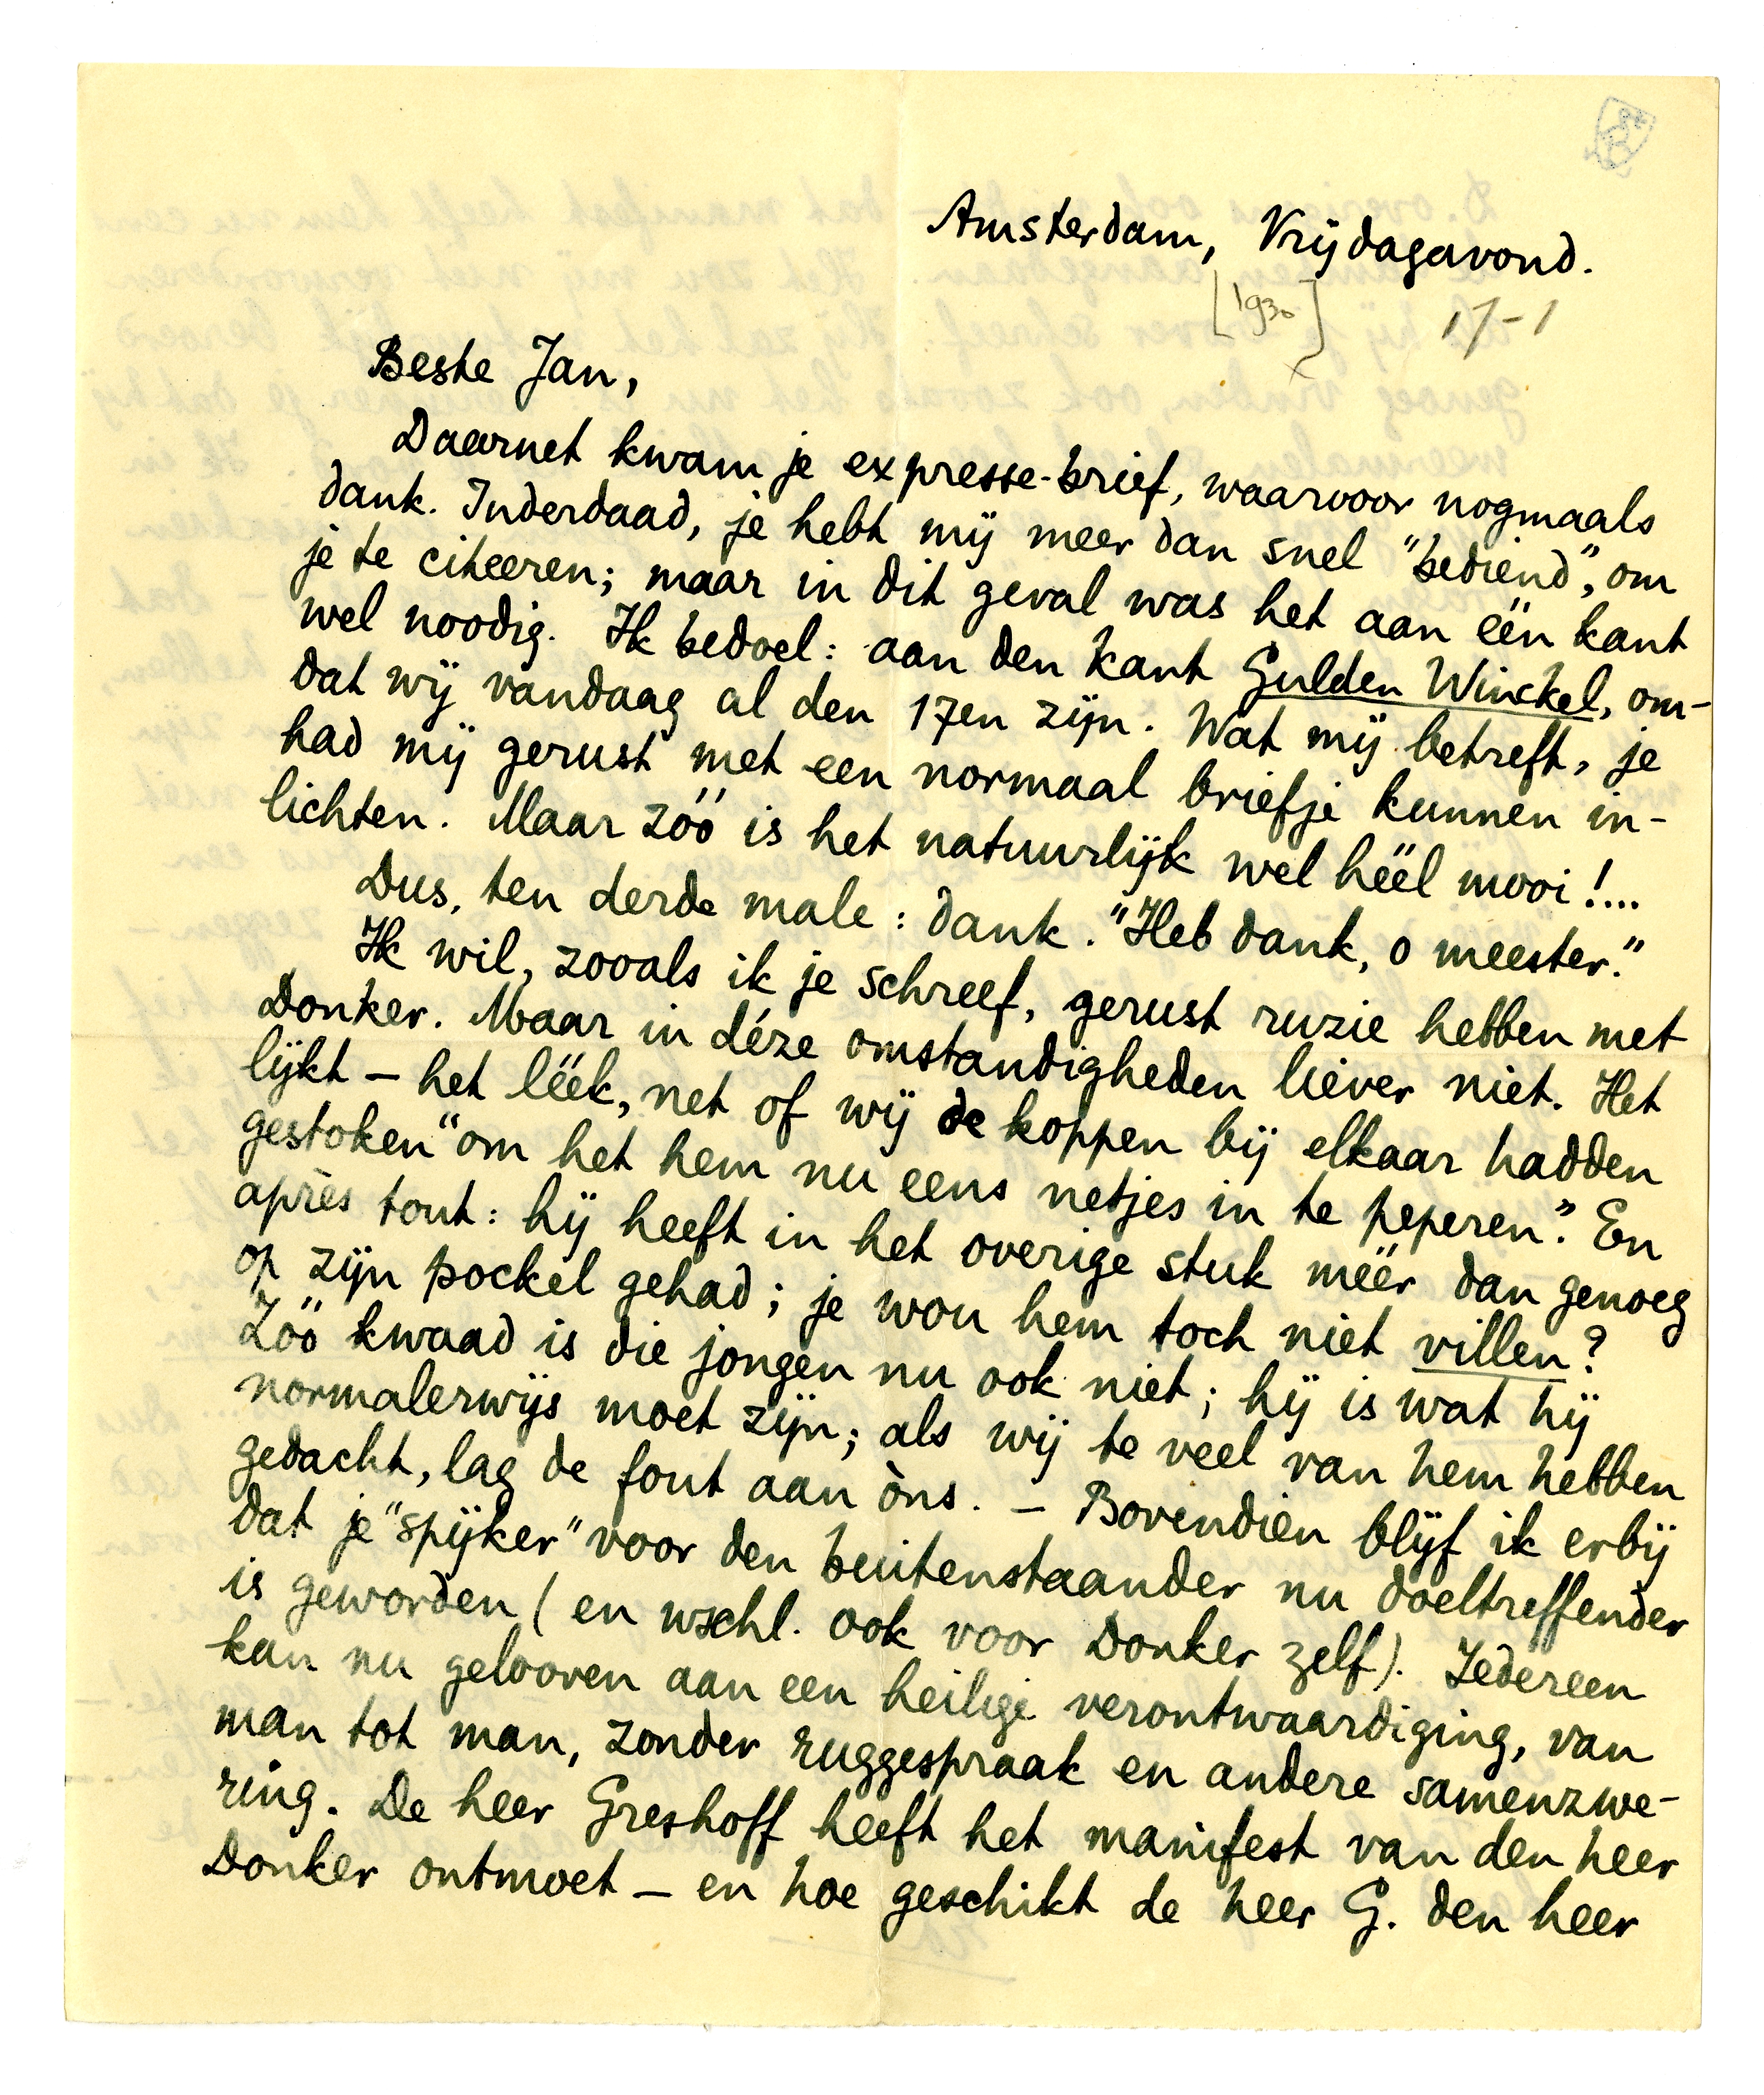 Amsterdam, Vrijdagavond.
[1930] 17-1
x
Beste Jan,
Daarnet kwam je expresse-brief, waarvoor nogmaals
dank. Inderdaad, je hebt mij meer dan snel "bediend", om
je te citeeren; maar in dit geval was het aan één kant
wel noodig. Ik bedoel: aan den kant Gulden Winckel, om-
dat wij vandaag al den 17en zijn. Wat mij betreft, je
had mij gerust met een normaal briefje kunnen in-
lichten. Maar zóó is het natuurlijk wel héél mooi!...
Dus, ten derde male: dank. "Heb dank, o meester."
Ik wil, zooals ik je schreef, gerust ruzie hebben met
Donker. Maar in déze omstandigheden liever niet. Het
lijkt – het léék, net of wij de koppen bij elkaar hadden
gestoken "om het hem nu eens netjes in te peperen". En
après tout: hij heeft in het overige stuk méér dan genoeg
op zijn pockel gehad; je wou hem toch niet villen?
Zóó kwaad is die jongen nu ook niet; hij is wat hij
normalerwijs moet zijn; als wij te veel van hem hebben
gedacht, lag de fout aan òns. – Bovendien blijf ik erbij
dat je "spijker" voor den buitenstaander nu doeltreffender
is geworden (en wschl. ook voor Donker zelf). Iedereen
kan nu gelooven aan een heilige verontwaardiging, van
man tot man, zonder ruggespraak en andere samenzwe-
ring. De heer Greshoff heeft het manifest van den heer
Donker ontmoet – en hoe geschikt de heer G. den heer